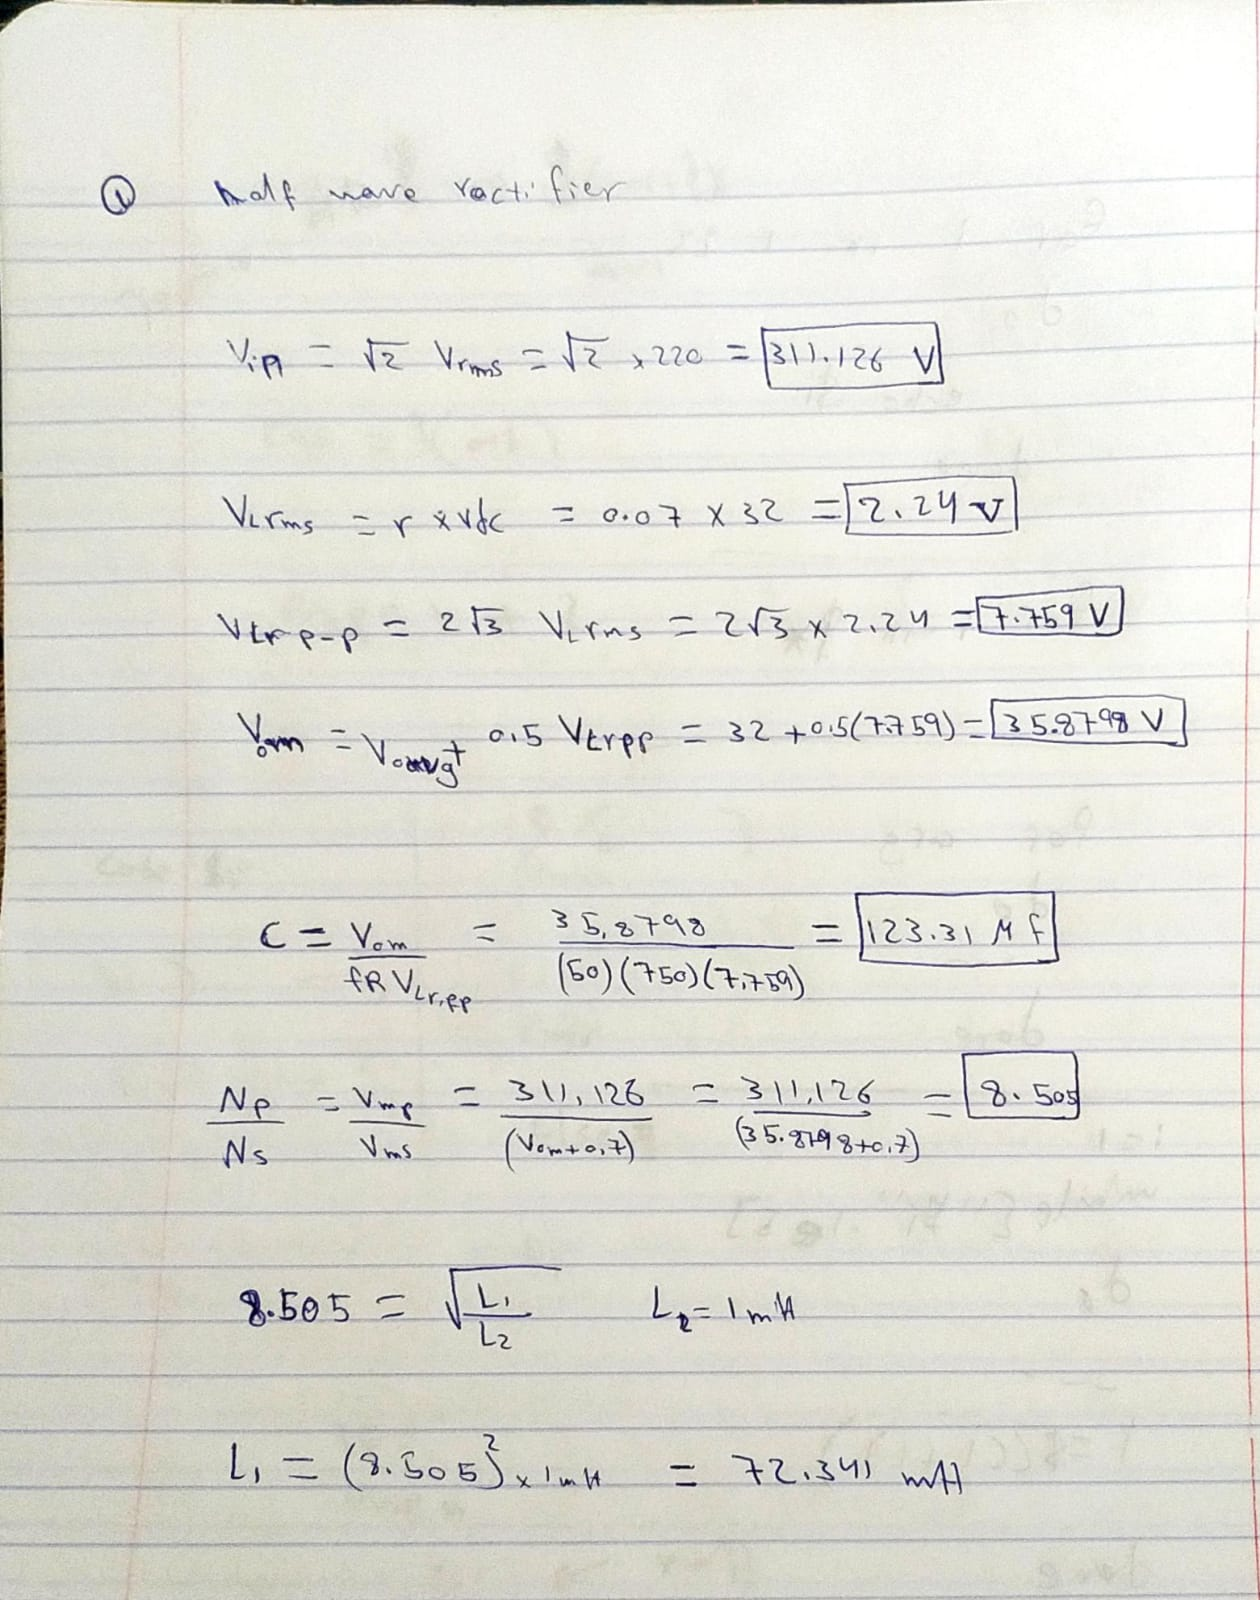 ① Half wave rectifier
Vip = √2 Vrms = √2 x 220 = 311.126 V
VLrms = r x Vdc = 0.07 x 32 = 2.24 V
VLr p-p = 2√3 VLrms = 2√3 x 2.24 = 7.759 V
Vom = Voavg + 0.5 VLrpp = 32 + 0.5(7.759) = 35.8798 V
C = Vom / fR VLr,pp = 35.8798 / (50)(750)(7.759) = 123.31 Mf
Np / Ns = Vmp / Vms = 311.126 / (Vom+0.7) = 311.126 / (35.8798+0.7) = 8.505
8.505 = √(L1 / L2) L2 = 1mH
L1 = (8.505)² x 1mH = 72.341 mH